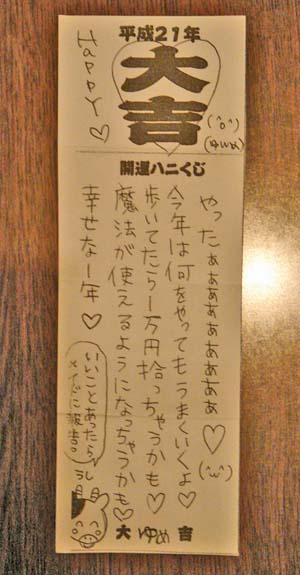 平成21年
大吉
HAPPY♡
(^o^)
(ゆいめ)
開運ハニくじ
やったぁぁぁぁぁぁぁぁ♡(^ω^)
今年は何をやってもうまくいくよ♡
歩いてたら1万円拾っちゃうかも♡
魔法が使えるようになっちゃうかも♡
幸せな一年♡
いいことあったら
に報告。
うし
大 ゆめ 吉